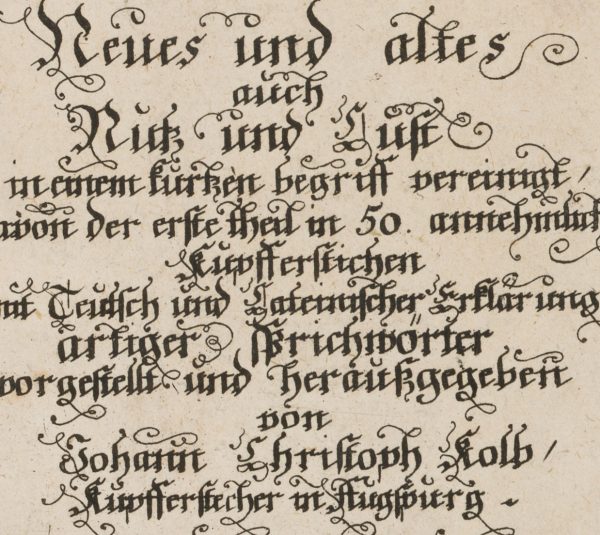 Neues und altes
auch
Nutz und Lust
in einem kurtzen begriff vereinigt /
avon der erste theil in 50. annehmlich
Kupfferstichen
mit Teutsch und Lateinischer Erklärung
artiger Sprichwörter
vorgestellt und heraußgegeben
von
Johann Christoph Kolb /
Kupfferstecher in Augspurg.